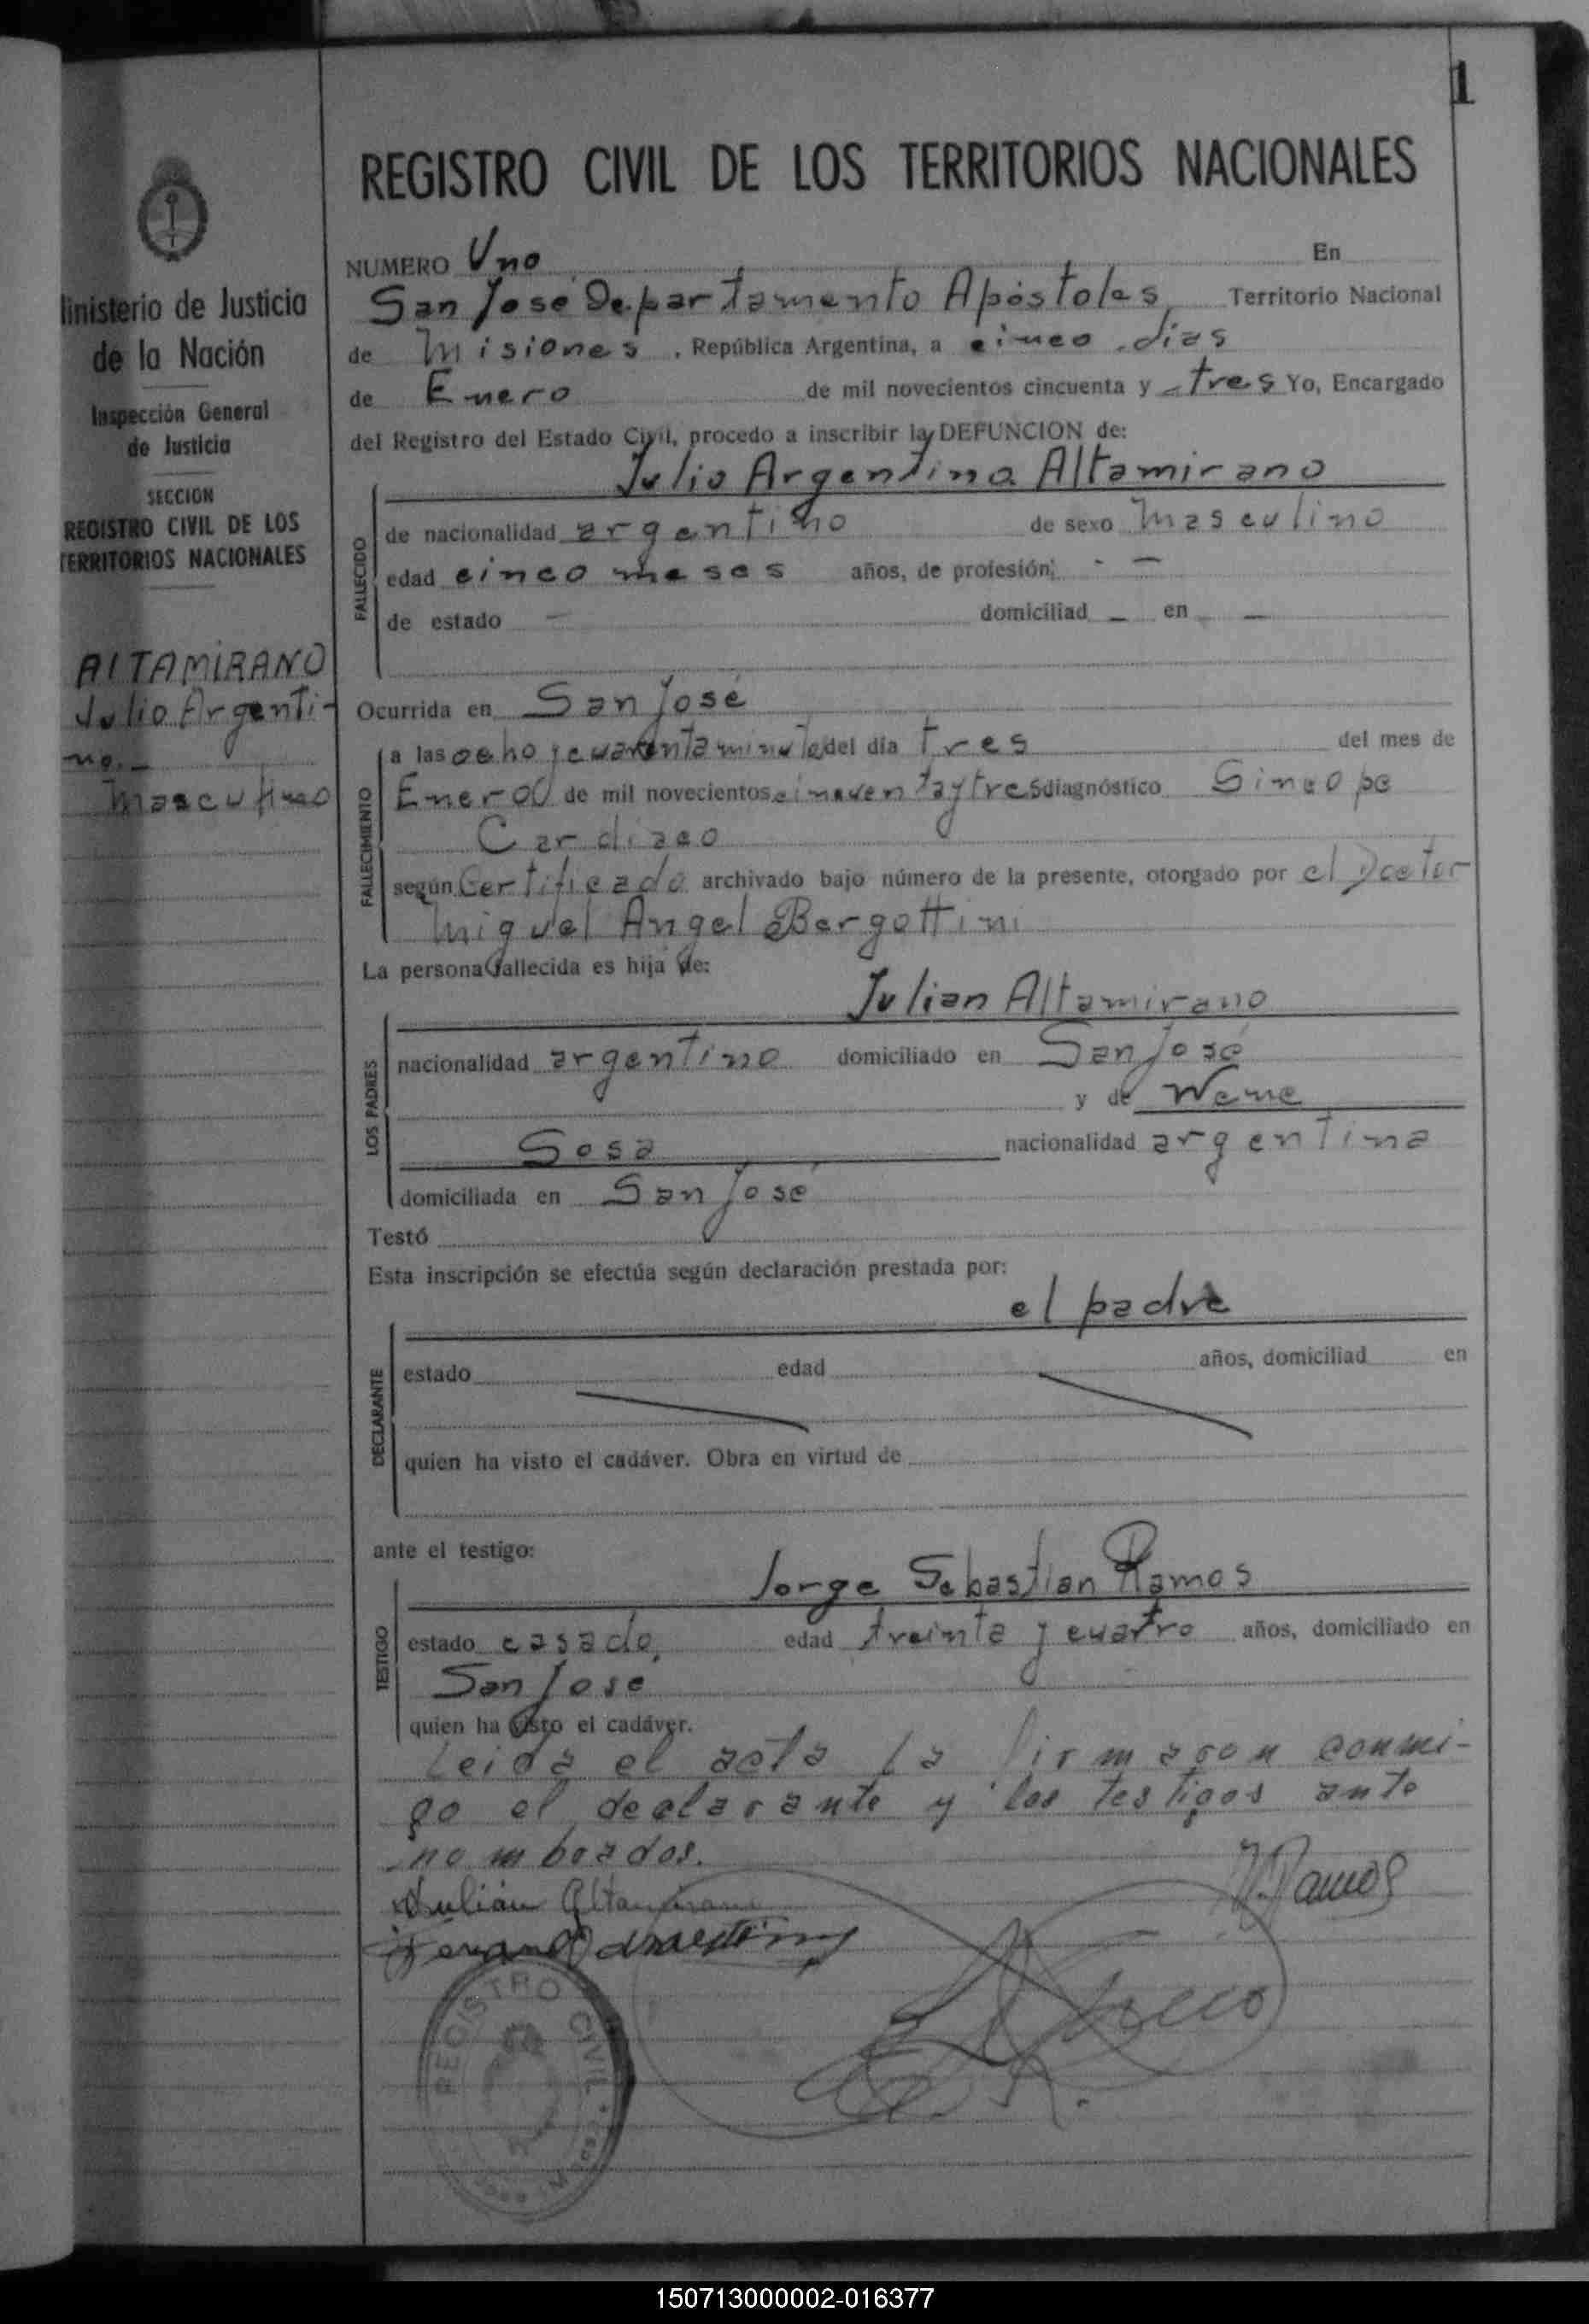 1
REGISTRO CIVIL DE LOS TERRITORIOS NACIONALES
Ministerio de Justicia
de la Nación
Inspección General
de Justicia
SECCION
REGISTRO CIVIL DE LOS
TERRITORIOS NACIONALES
ALTAMIRANO
Julio Argenti-
no.-
Masculino
NUMERO Uno En
San José Departamento Apóstoles Territorio Nacional
de Misiones, República Argentina, a cinco días
de Enero de mil novecientos cincuenta y tres Yo, Encargado
del Registro del Estado Civil, procedo a inscribir la DEFUNCION de:
Julio Argentino Altamirano
FALLECIDO
de nacionalidad argentino de sexo Masculino
edad cinco meses años, de profesión: - —
de estado — domiciliad — en —
Ocurrida en San José
FALLECIMIENTO
a las ocho y cuarenta minutos del día tres del mes de
Enero de mil novecientos cincuenta y tres diagnóstico Sincope
Cardiaco
según Certificado archivado bajo número de la presente, otorgado por el Doctor
Miguel Angel Bergottini
La persona fallecida es hija de:
Julian Altamirano
LOS PADRES
nacionalidad argentino domiciliado en San José
y de Wene
Sosa nacionalidad argentina
domiciliada en San José
Testó
Esta inscripción se efectúa según declaración prestada por:
el padre
DECLARANTE
estado edad años, domiciliad en
quien ha visto el cadáver. Obra en virtud de
ante el testigo:
Jorge Sebastian Ramos
TESTIGO
estado casado, edad treinta y cuatro años, domiciliado en
San José
quien ha visto el cadáver.
Leida el acta la firmaron conmi-
go el declarante y los testigos ante
nombrados.
Julián Altamirano
J. Ramos
REGISTRO CIVIL
150713000002-016377